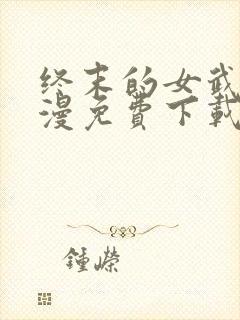 终末的女武
漫免費下載
鍾嶸